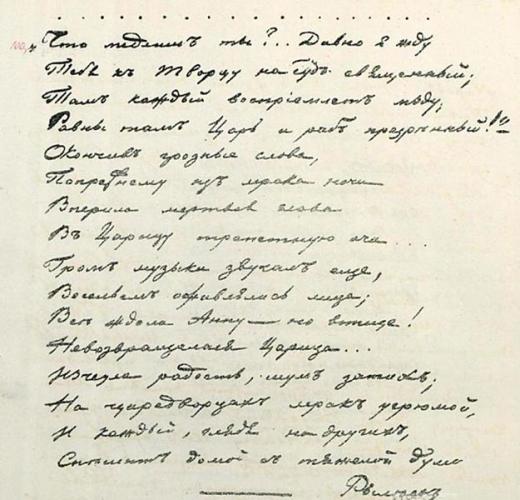 . . . . . . . . . . . . . . . .
Что медлишь ты?.. Давно я жду
Тебя къ Творцу на судъ священный;
Тамъ каждый воспріемлетъ мзду;
Равны тамъ Царь и рабъ презрѣнный!"
Окончивъ грозныя слова,
По прежнему изъ мрака ночи
Вперила мертвая глава
Въ Царицу трепетную очи...
Громъ музыки звучалъ еще,
Весельемъ оживлялись лица;
Всѣ ждали Анну — но вотще!
Не возвращалася Царица...
Изчезла радость, шумъ затихъ;
На царедворцахъ мракъ угрюмой,
И каждый, глядя на другихъ,
Спѣшитъ домой съ тяжелой думой
Рылѣевъ